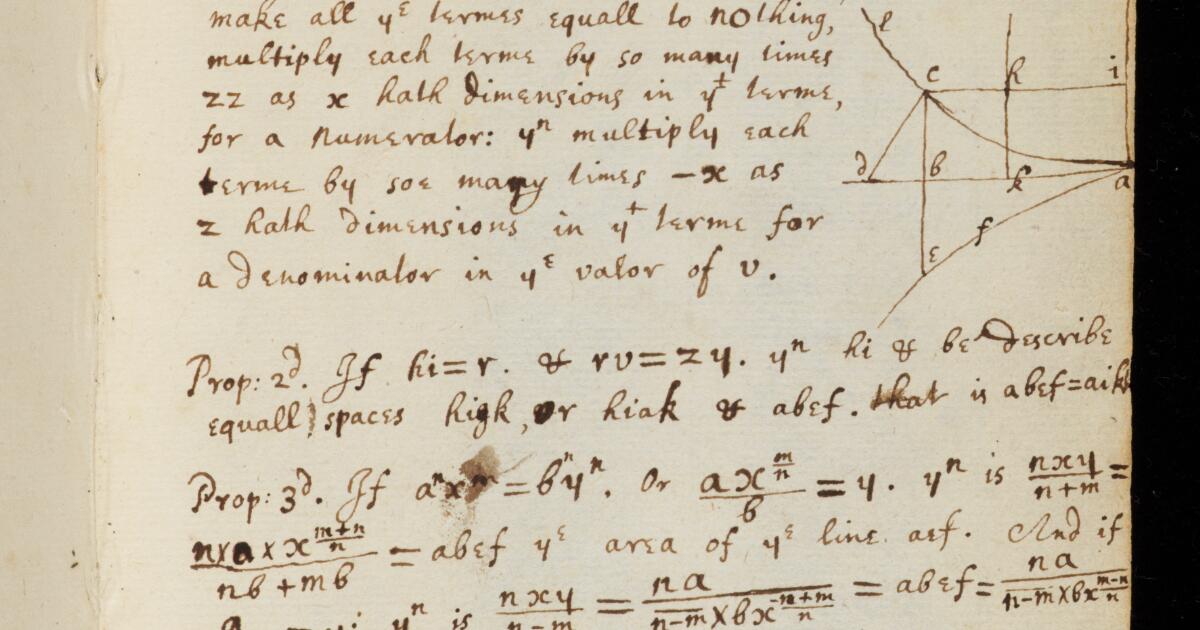 make all yᵉ termes equall to nothing,
multiply each terme by so many times
zz as x hath dimensions in yᵗ terme,
for a Numerator: yⁿ multiply each
terme by soe many times −x as
z hath dimensions in yᵗ terme for
a denominator in yᵉ valor of v.
l
c h i
d b k a
f
e
Prop: 2ᵈ. If hi=r. & rv=zy. yⁿ hi & be describe
equall spaces higk, or hiak & abef. that is abef=aik
Prop: 3ᵈ. If aⁿxᵐ=bⁿyⁿ. Or \frac{ax^{\frac{m}{n}}}{b}=y. yⁿ is \frac{nxy}{n+m}=
\frac{n×a×x^{\frac{m+n}{n}}}{nb+mb} = abef yᵉ area of yᵉ line aef. And if
yⁿ is \frac{nxy}{n−m} = \frac{na}{n−m×bx^{\frac{−n+m}{n}}} = abef= \frac{na}{n−m×bx^{\frac{m−n}{n}}}